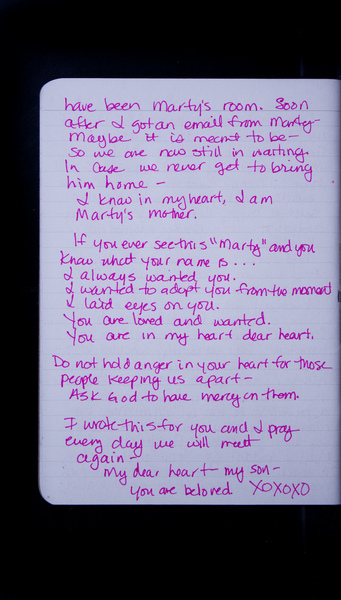 have been Marty's room. Soon
after I got an email from Marty
Maybe it is meant to be -
So we are now still in waiting.
In case we never get to bring
him home -
I know in my heart, I am
Marty's mother.
If you ever see this "Marty" and you
know what your name is...
I always wanted you.
I wanted to adopt you from the moment
I laid eyes on you.
You are loved and wanted.
You are in my heart dear heart.
Do not hold anger in your heart for those
people keeping us apart -
Ask God to have mercy on them.
I wrote this for you and I pray
every day we will meet
again -
My dear heart my son -
you are beloved. XOXOXO